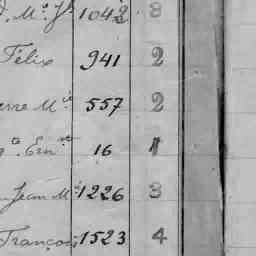 Mᵉ Jʰ 1042 3
Félix 941 2
erre Mⁱᵉ 557 2
Ernˢᵗ 16 1
Jean Mⁱᵉ 1226 3
François 1523 4